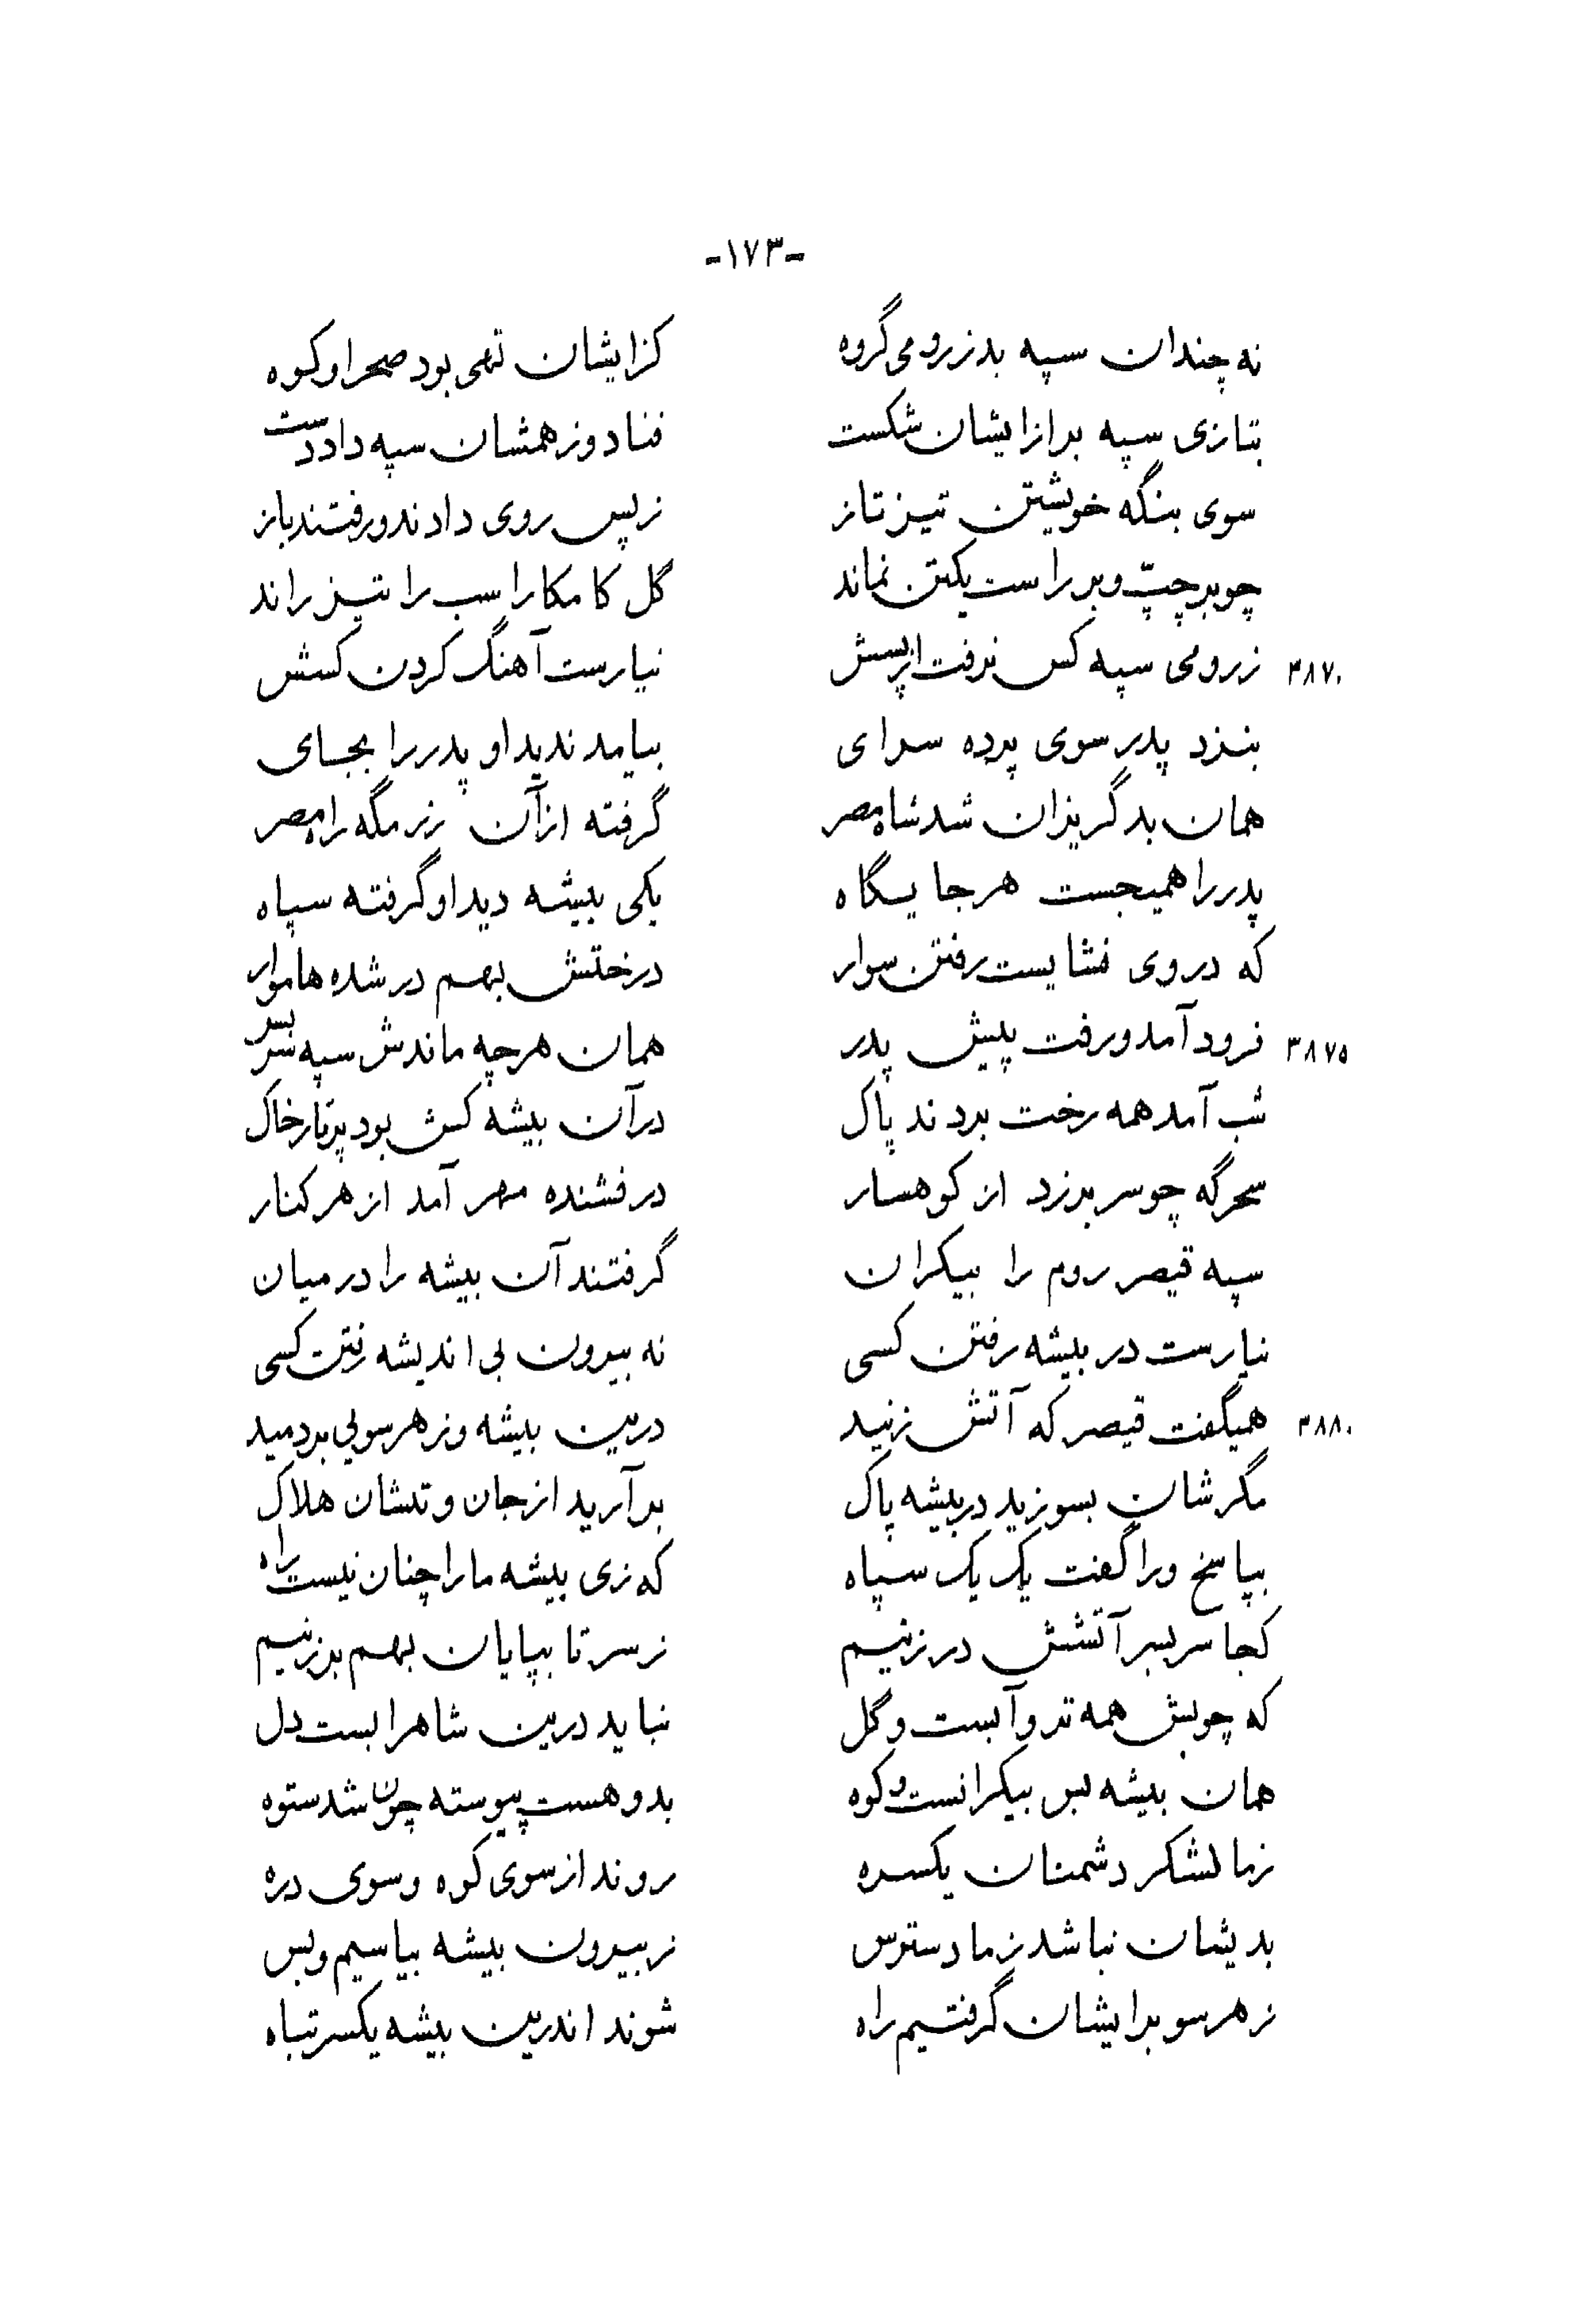 -۱۷۳-
نه چندان سپه بد ز رومی گروه کزایشان تهی بود صحرا و کوه
بتازی سپه بر از ایشان شکست فتاد و ز همشان سپه داد دست
سوی بنگه خویشتن تیز تاز ز پس روی دادند و رفتند باز
چو بر چپّ و بر راست یکتن نماند گل کامکار اسب را تیز راند
۳۸۷۰ ز رومی سپه کس نرفت از پسش نیارست آهنگ کردن کسش
بنزد پدر سوی پرده سرای بیامد ندید او پدر را بجای
همان بد گریزان شد شاه مصر گرفته از آن رزمگه راه مصر
پدر را همیجست هر جایگاه یکی بیشه دید او گرفته سپاه
که در وی نشایست رفتن سوار درختش بهم در شده هاموار
۳۸۷۵ فرود آمد و رفت پیش پدر همان هرچه ماندش سپه سر بسر
شب آمد همه رخت بردند پاک در آن بیشه کش بود پرتار خاک
سحرگه چو سر بر زد از کوهسار درفشنده مهر آمد از هر کنار
سپه قیصر روم را بیکران گرفتند آن بیشه را در میان
نیارست در بیشه رفتن کسی نه بیرون بی اندیشه رفتن کسی
۳۸۸۰ همیگفت قیصر که آتش زنید درین بیشه وز هر سویی بردمید
مگرشان بسوزید در بیشه پاک برآرید از جان و تنشان هلاک
بپاسخ ورا گفت یک یک سپاه که زی بیشه ما را چنان نیست راه
کجا سربسر آتشش در زنیم ز سر تا بپایان بهم برزنیم
که چوبش همه تر و آبست و گل نباید درین شاهرا بست دل
همان بیشه بس بیکرانست و کوه بدو هست پیوسته چون شد ستوه
ز ما لشکر دشمنان یکسره روند از سوی کوه و سوی دره
بدیشان نباشد ز ما دسترس ز بیرون بیشه بپاسیم و بس
ز هر سو بر ایشان گرفتیم راه شوند اندرین بیشه یکسر تباه